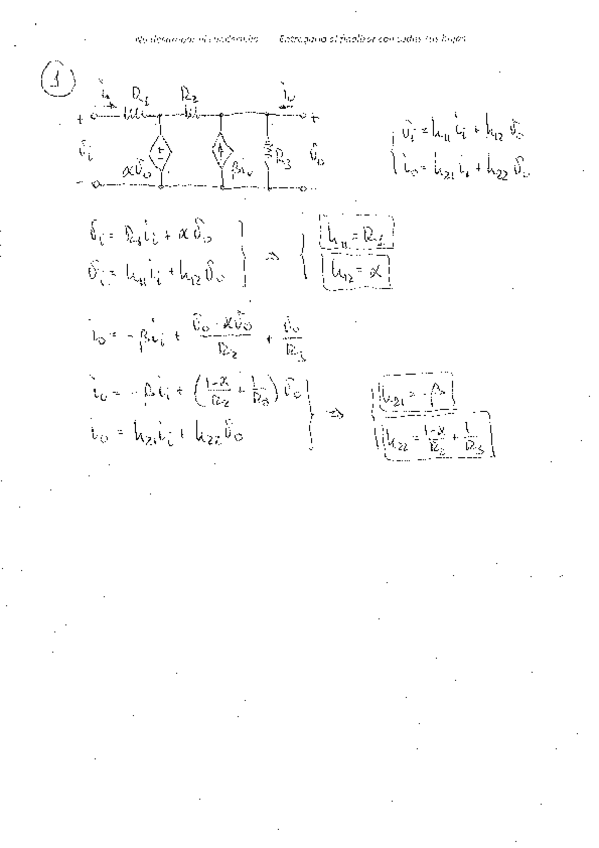 No desgrapar el cuadernillo Entregarlo al finalizar con todas sus hojas
1
i_i R_1 R_2 i_o
+ +
v_i αv_o βi_i R_3 v_o
- -
v_i = h_11 i_i + h_12 v_o
i_o = h_21 i_i + h_22 v_o
v_i = R_1 i_i + αv_o
v_i = h_11 i_i + h_12 v_o
⇒
h_11 = R_1
h_12 = α
i_o = -βi_i + (v_o - αv_o)/R_2 + v_o/R_3
i_o = -βi_i + ((1-α)/R_2 + 1/R_3) v_o
i_o = h_21 i_i + h_22 v_o
⇒
h_21 = -β
h_22 = (1-α)/R_2 + 1/R_3